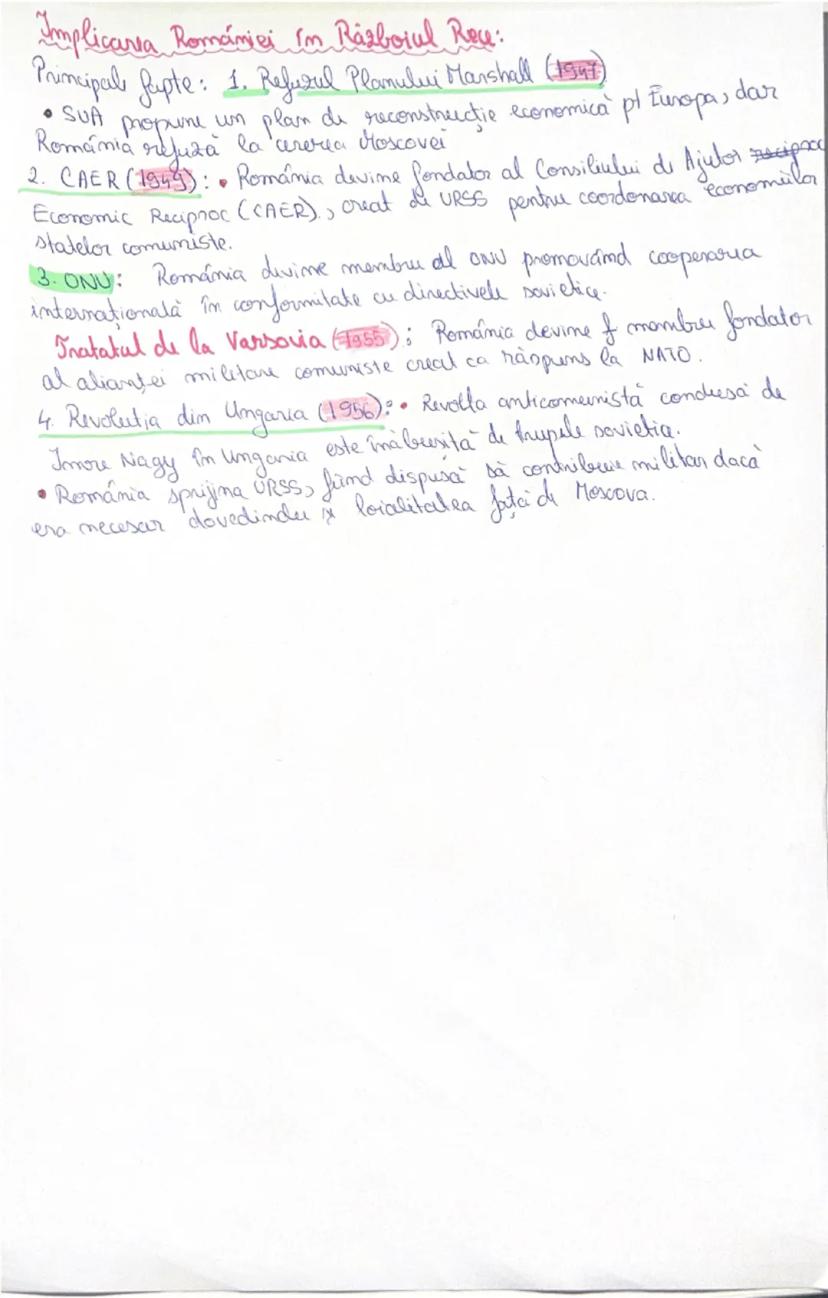 Implicarea României în Războiul Rece:
Principale fapte: 1. Refuzul Planului Marshall (1947)
• SUA propune un plan de reconstrucție economică pt Europa, dar
România refuză la cererea Moscovei
2. CAER (1949): • România devine fondator al Consiliului de Ajutor reciproc
Economic Reciproc (CAER)., creat de URSS pentru coordonarea economiilor
statelor comuniste.
3. ONU: România devine membru al ONU promovând cooperarea
internațională în conformitate cu directivele sovietice.
Tratatul de la Varsovia (1955): România devine f membru fondator
al alianței militare comuniste creat ca răspuns la NATO.
4. Revolutia din Ungaria (1956): • Revolta anticomunistă condusă de
Imre Nagy în Ungaria este înăbusită de trupele sovietice.
• România sprijina URSS, fiind dispusă să contribuie militar dacă
era necesar dovedindu și loialitatea față de Moscova.